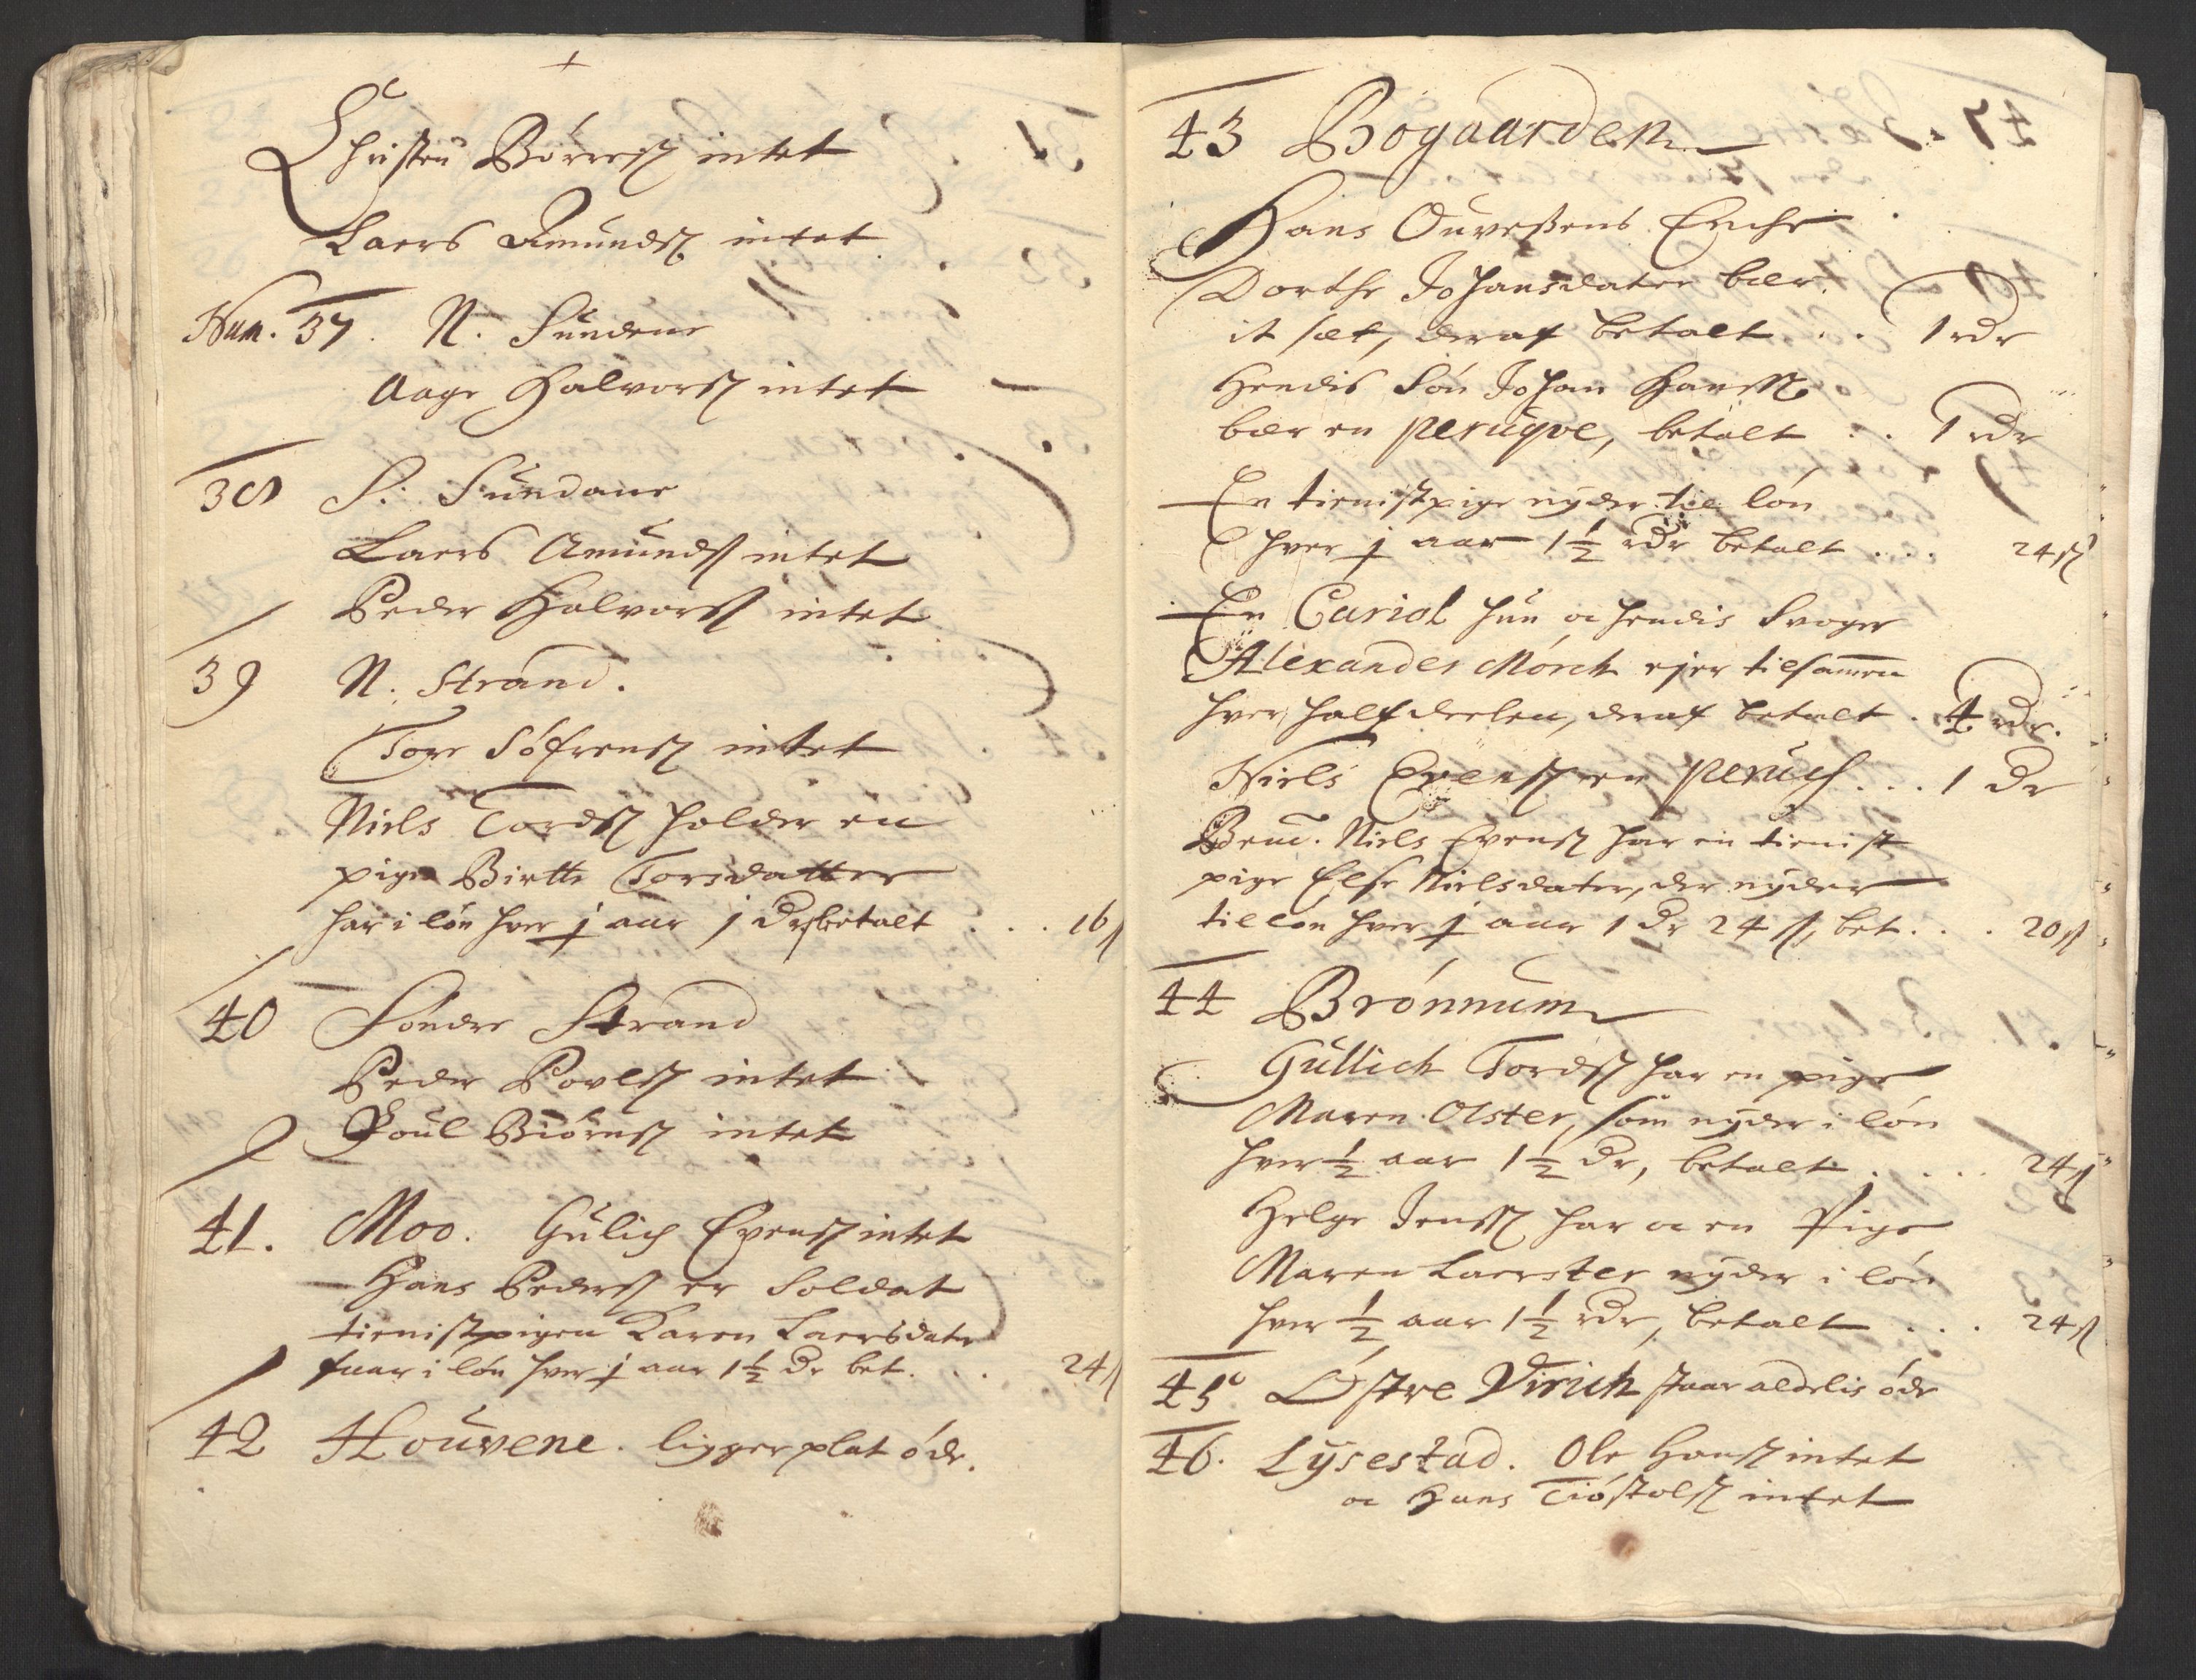 Christen Börresz intet
Laers Amundsz intet
Num. 37. N. Sundene
Aage Halvorsz intet
38 S. Sundane
Laers Amundsz intet
Peder Halvorsz intet
39 N. Strand.
Tore Söfrensz intet
Niels Tordsz holder en
pige Birtte Torsdatter
har i lön hver ½ aar 1 Dr betalt . . . 16 ß
40 Söndre Strand
Peder Povelsz intet
Poul Biörnsz intet
41. Moo. Gulich Evensz intet
Hans Pedersz er Soldat
tienistpigen Karen Laersdater
faar i lön hver ½ aar 1½ Dr bet. . . 24 ß
42 Houvene. ligger plat öde.
43 Bogaarden
Hans Ouveßens Enche
Dorthe Johansdater bær
it sæt, deraf betalt . . . 1 rdr
Hendis Sön Johan Hanssz
bær en peruqve, betalt . . 1 rdr
En tienistpige nyder til lön
hver ½ aar 1½ rdr betalt . . . 24 ß
En Cariol hun oc hendis Svoger
Alexander Mörch ejer tilsammen
hver halfdeelen, deraf betalt . 4 rdr.
Niels Evensz en peruch . . . 1 Dr
Bemt. Niels Evensz har en tienist
pige Else Nielsdater, der nyder
til lön hver ½ aar 1 Dr 24 ß, bet. . . 20 ß
44 Brönnum
Gullich Tordsz har en pige
Maren Olster, som nyder i lön
hver ½ aar 1½ Dr, betalt . . . . 24 ß
Helge Jenssz har oc en Pige
Maren Laerster nyder i lön
hver ½ aar 1½ rdr, betalt . . . 24 ß
45 Östre Virich staar aldelis öde
46. Lysestad. Ole Hansz intet
oc Hans Tiöstolsz intet